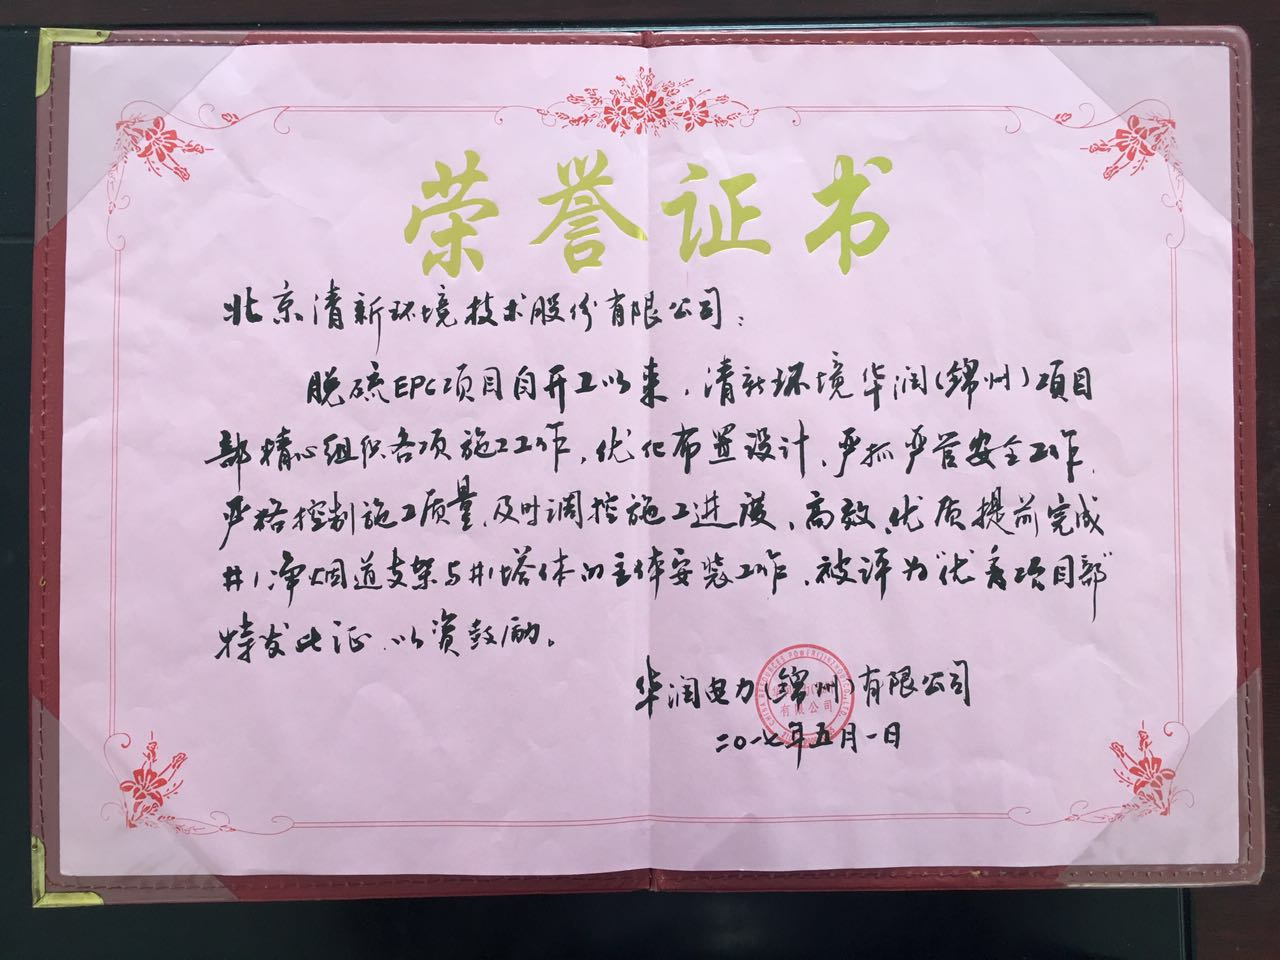 荣誉证书
北京清新环境技术股份有限公司：
脱硫EPC项目自开工以来，清新环境华润(锦州)项目
部精心组织各项施工工作，优化布置设计，严抓严管安全工作，
严格控制施工质量，及时调控施工进度，高效、优质提前完成
#1净烟道支架与#1塔体的主体安装工作，被评为“优秀项目部”
特发此证，以资鼓励。
华润电力(锦州)有限公司
有限公司
二〇一七年五月一日